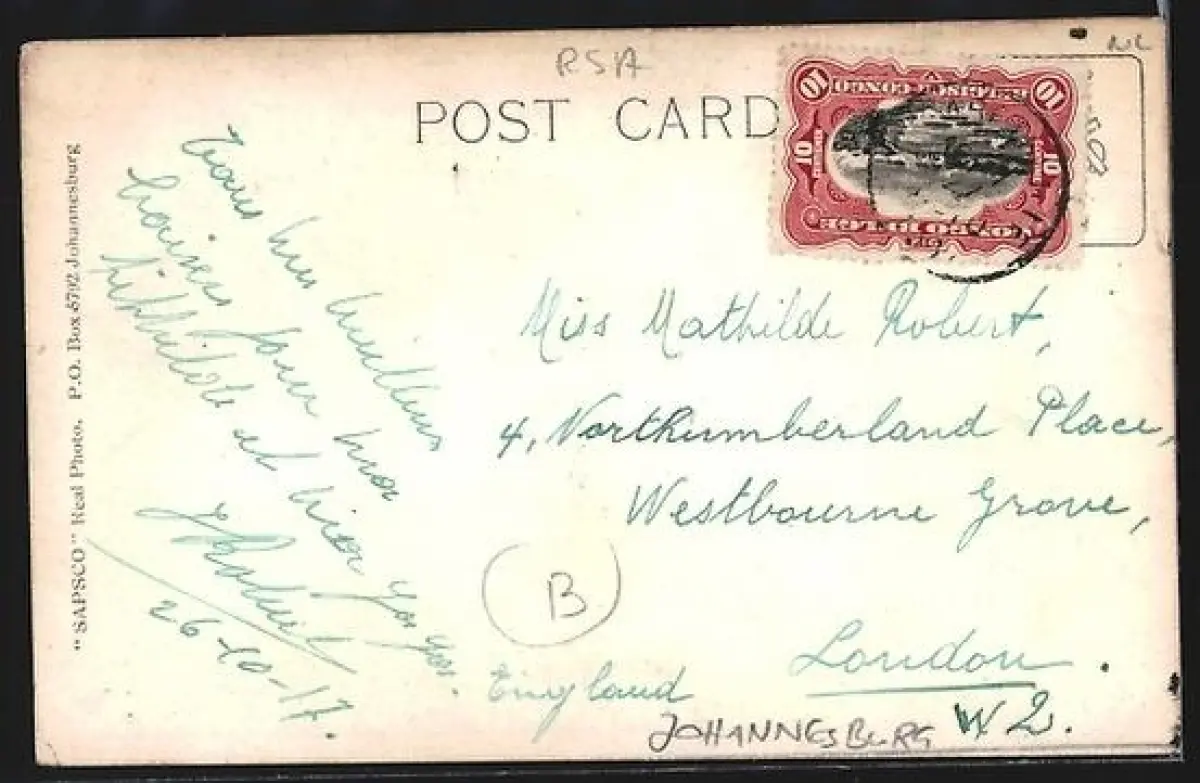 RSA
NL
POST CARD
10 BELGISCH-CONGO 10
10 10
CONGO BELGE
"SAPSCO" Real Photo. P.O. Box 5792 Johannesburg
Tous mes meilleurs
baisers pour mon
et mon
26-10-17.
Miss Mathilde Robert,
4, Northumberland Place,
Westbourne Grove,
London.
W 2.
England
B
JOHANNESBURG